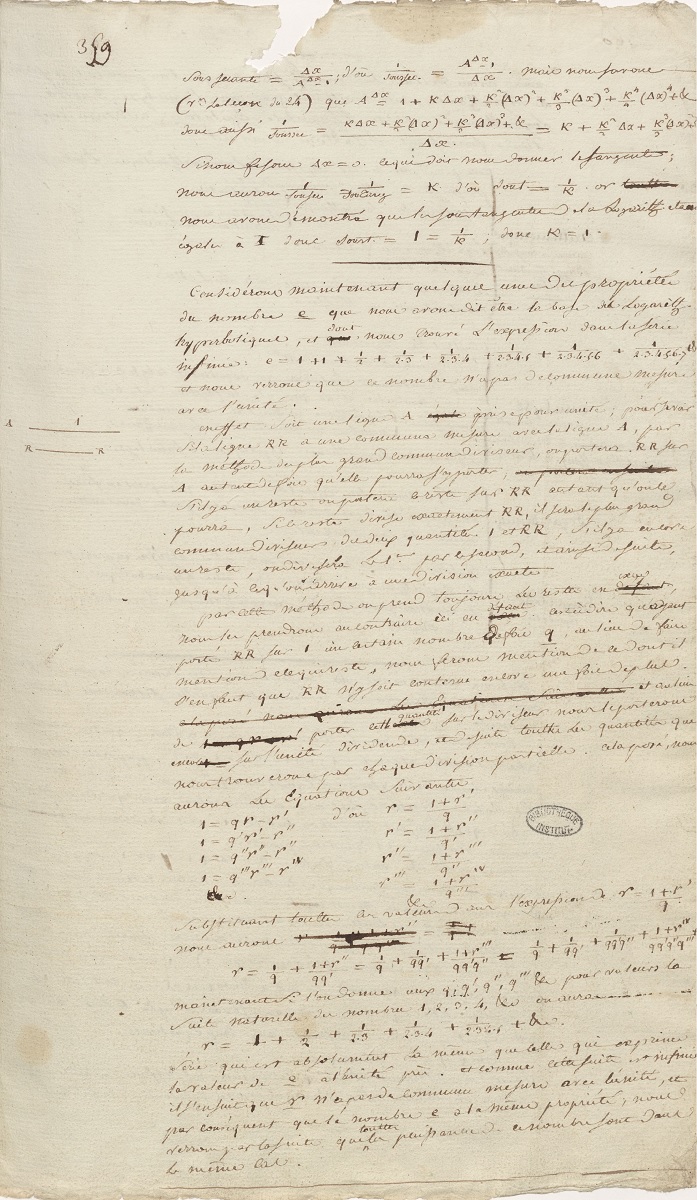 359
soussecante = Δx/A^Δx-1; d'où 1/soussec. = A^Δx-1/Δx. mais nous savons
(vr. la leçon du 24) que A^Δx = 1 + KΔx + K²/2(Δx)² + K³/2.3(Δx)³ + K⁴/(Δx)⁴ + &
donc aussi 1/soussec = KΔx + K²/2(Δx)² + K³(Δx)³ + &/Δx. = K + K²/2 Δx + K³(Δx)²
Si nous fesons Δx = 0. ce qui doit nous donner la tangente;
nous aurons 1/soussec = 1/soutang = K d'où sout = 1/K. or
nous avons démontré que la soutangente de la
égale à 1 donc sout. = 1 = 1/K; donc K = 1.
Considérons maintenant quelques unes des propriétés
du nombre e que nous avons dit être la base des Logarith
hyperboliques, et dont nous trouvé l'expression dans la serie
infinie: e = 1 + 1 + 1/2 + 1/2.3 + 1/2.3.4 + 1/2.3.4.5 + 1/2.3.4.5.6 + 1/2.3.4.5.6.7 &
et nous verrons que ce nombre n'a pas de commune mesure
avec l'unité.
en effet soit une ligne A prise pour unité; pour savoir
A 1
si la ligne RR a une commune mesure avec la ligne A, par
R R
la méthode du plus grand commun diviseur, on portera RR sur
A autant de fois qu'elle pourra s'y porter,
S'il y a un reste on portera le reste sur RR autant qu'on le
pourra, si le reste divise exactement RR, il sera le plus grand
commun diviseur des deux quantités 1 et RR, s'il y a encore
un reste, on divisera le 1er par le second, et ainsi de suite,
jusqu'à ce qu'on arrive à une division exacte
par cette méthode on prend toujours les restes en
nous les prendrons au contraire ici en c'est à dire qu'ayant
porté RR sur 1 un certain nombre de fois q, au lieu de faire
mention de ce qui reste, nous ferons mention de ce dont il
s'en faut que RR n'y soit contenue encore une fois de plus.
et au lieu
de porter cette quantité sur le diviseur nous le porterons
encore sur l'unité dividende, et de suite toutes les quantités que
nous trouverons par chaque division partielle. cela posé, nous
aurons les Equations suivantes
1 = qr - r' d'où r = 1+r'/q
1 = q'r' - r'' r' = 1+r''/q'
1 = q''r'' - r''' r'' = 1+r'''/q''
1 = q'''r''' - r^IV r''' = 1+r^IV/q'''
&c. &c
BIBLIOTHÈQUE
INSTITUT
Substituant toutes ces valeurs dans l'expression de r = 1+r'/q
nous aurons
r = 1/q + 1+r''/qq' = 1/q + 1/qq' + 1+r'''/qq'q'' = 1/q + 1/qq' + 1/qq'q'' + 1+r^IV/qq'q''q'''
maintenant si l'on donne aux q, q', q'', q''' &c pour valeurs la
suite naturelle des nombres 1, 2, 3, 4, &c on aura
r = 1 + 1/2 + 1/2.3 + 1/2.3.4 + 1/2.3.4.5 + &c.
Série qui est absolument la même que celle qui exprime
la valeur de e à l'unité près. et comme cette suite est infinie
il s'ensuit que r n'a pas de commune mesure avec l'unité, et
par conséquent que le nombre e a la même propriété, nous
verrons par la suite que toutes les puissances de ce nombre sont dans
le même cas.